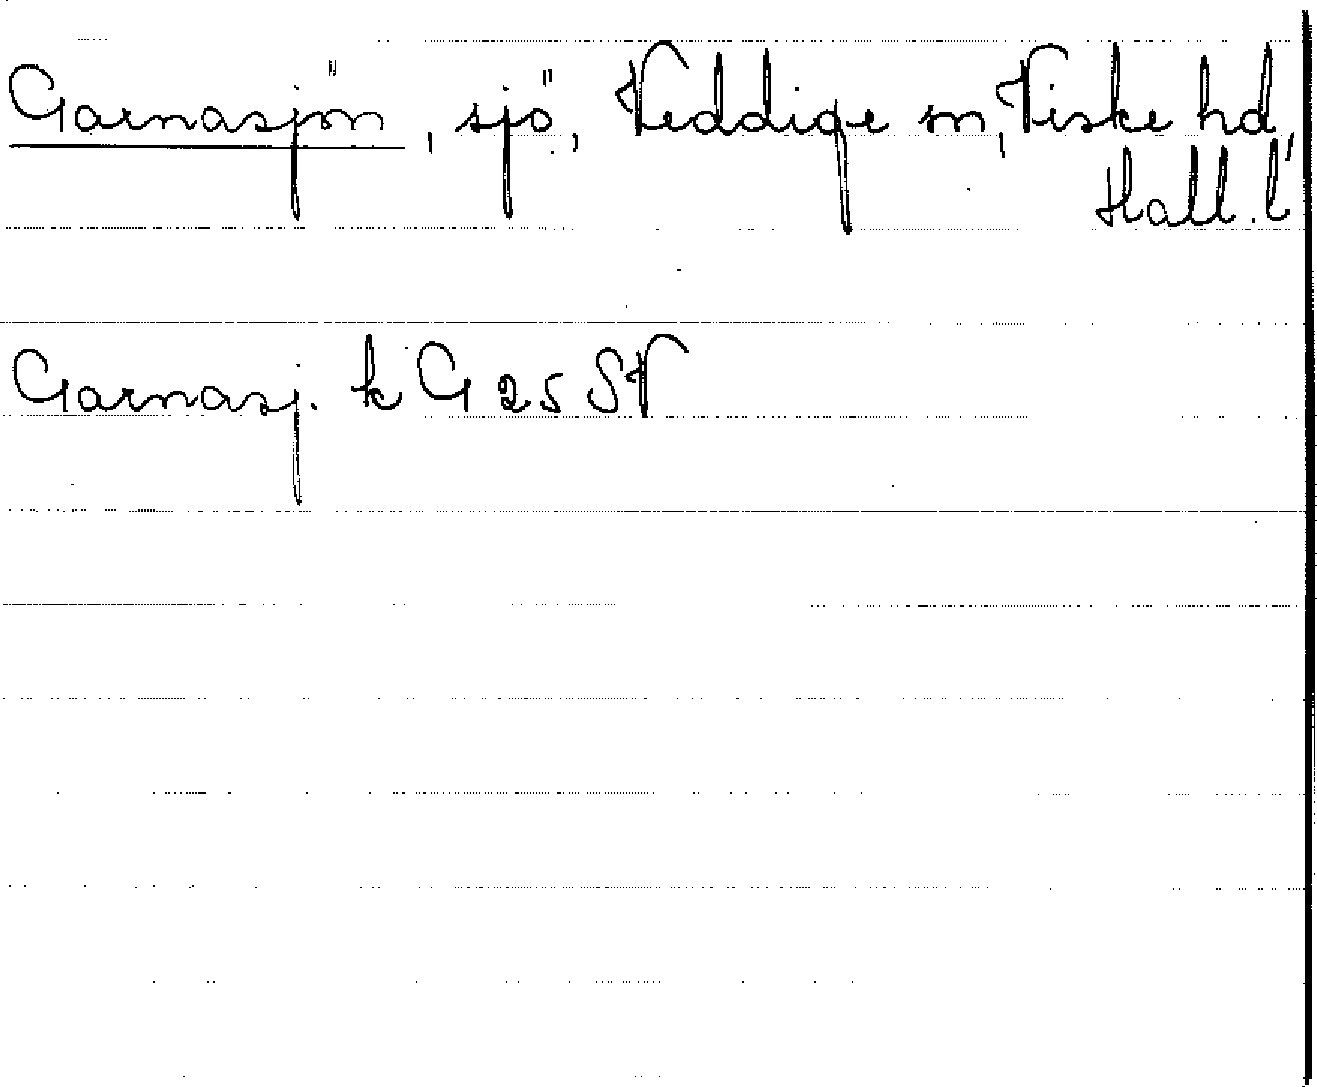 Garnasjön, sjö, Veddige sn, Viske hd,
Hall. l
Garnasj. k G 25 SV